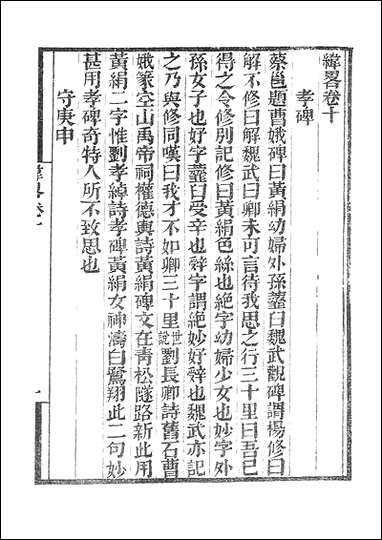 緯畧卷十
孝碑
蔡邕題曹娥碑曰黃絹幼婦外孫虀臼魏武觀碑謂楊修曰
解不修曰解魏武曰卿未可言待我思之行三十里曰吾已
得之令修別記修曰黃絹色絲也絶字幼婦少女也妙字外
孫女子也好字虀臼受辛也辤字謂絶妙好辤也魏武亦記
之乃與修同嘆曰我才不如卿三十里世說劉長卿詩舊石曹
娥篆空山禹帝祠權德輿詩黃絹碑文在靑松隧路新此用
黃絹二字惟劉孝綽詩孝碑黃絹女神濤白鷺翔此二句妙
甚用孝碑奇特人所不致思也
守庚申